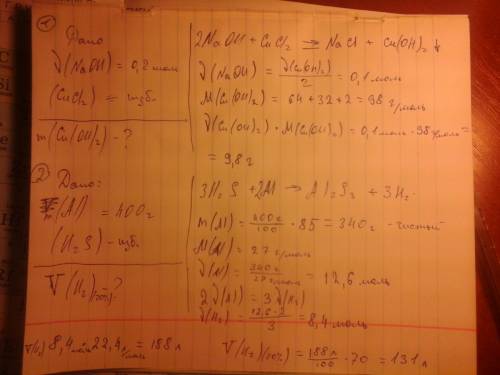 ①
Дано
ν(NaOH) = 0,2 моль
(CuCl₂) = изб.
m(Cu(OH)₂) - ?
2NaOH + CuCl₂ ⇒ NaCl + Cu(OH)₂ ↓
ν(NaOH) = ν(Cu(OH)₂)/2 = 0,1 моль
M(Cu(OH)₂) = 64 + 32 + 2 = 98 г/моль
ν(Cu(OH)₂) · M(Cu(OH)₂) = 0,1 моль · 98 г/моль =
= 9,8 г
②
Дано:
m(Al) = 400 г
(H₂S) - изб.
V(H₂)(70%) ?
3H₂S + 2Al → Al₂S₃ + 3H₂
m(Al) = 400г/100 · 85 = 340 г - чистый
M(Al) = 27 г/моль
ν(Al) = 340г/27 г/моль = 12,6 моль
2ν(Al) = 3ν(H₂)
ν(H₂) = 12,6 · 2/3 = 8,4 моль
V(H₂) 8,4 моль 22,4 л/моль = 188 л
V(H₂)(70%) = 188 л/100 · 70 = 131 л